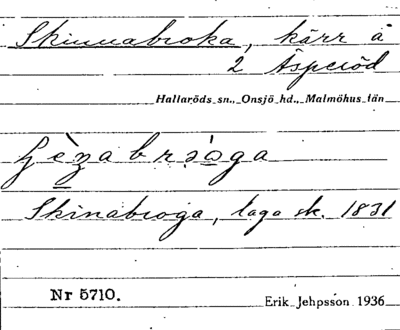 Skinnabroka, kärr å
2 Äsperöd
Hallaröds sn., Onsjö hd., Malmöhus län
Skinabroga, laga sk. 1831
Nr 5710.
Erik Jehpsson 1936